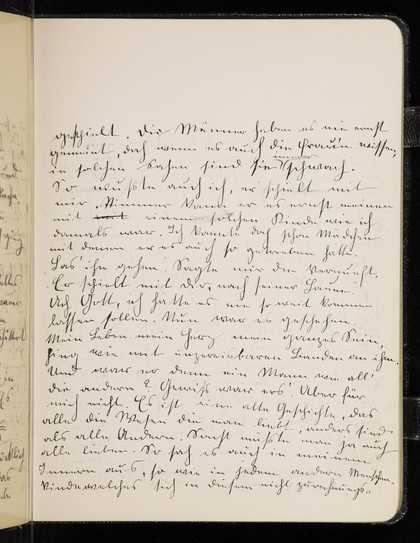 gespielt. Die Männer haben es nie ernst
gemeint, doch wenn es auch die Frau'n wissen,
in solchen Sachen sind sie schwach.
So wußte auch ich, er spielt mit
mir. Nimmer kann er es ernst meinen
mit einem solchen Kinde wie ich
damals war. Ich kannte doch schon Mädchen
mit denen er es auch so getrieben hatte.
Las' ihn gehen! Sagte mir die Vernunft.
Er spielt mit dir, nach seiner Laune.
Ach Gott, ich hatte es nie so weit kommen
lassen sollen. Nun war es geschehen.
Mein Leben mein Herz mein ganzes Sein,
hing wie mit unzerreisbaren Banden an ihm.
Und war er denn ein Mann wie all'
die andern? Gewiß war ers! Aber für
mich nicht. Es ist eine alte Geschichte, das
alle die Wesen die man liebt, anders sind
als alle Andern. Sonst müßte man ja auch
alle lieben. So sah es auch in meinem
Innern aus, so wie in jedem andern Menschen-
kinde welches sich in diesem nicht zurechnungs-